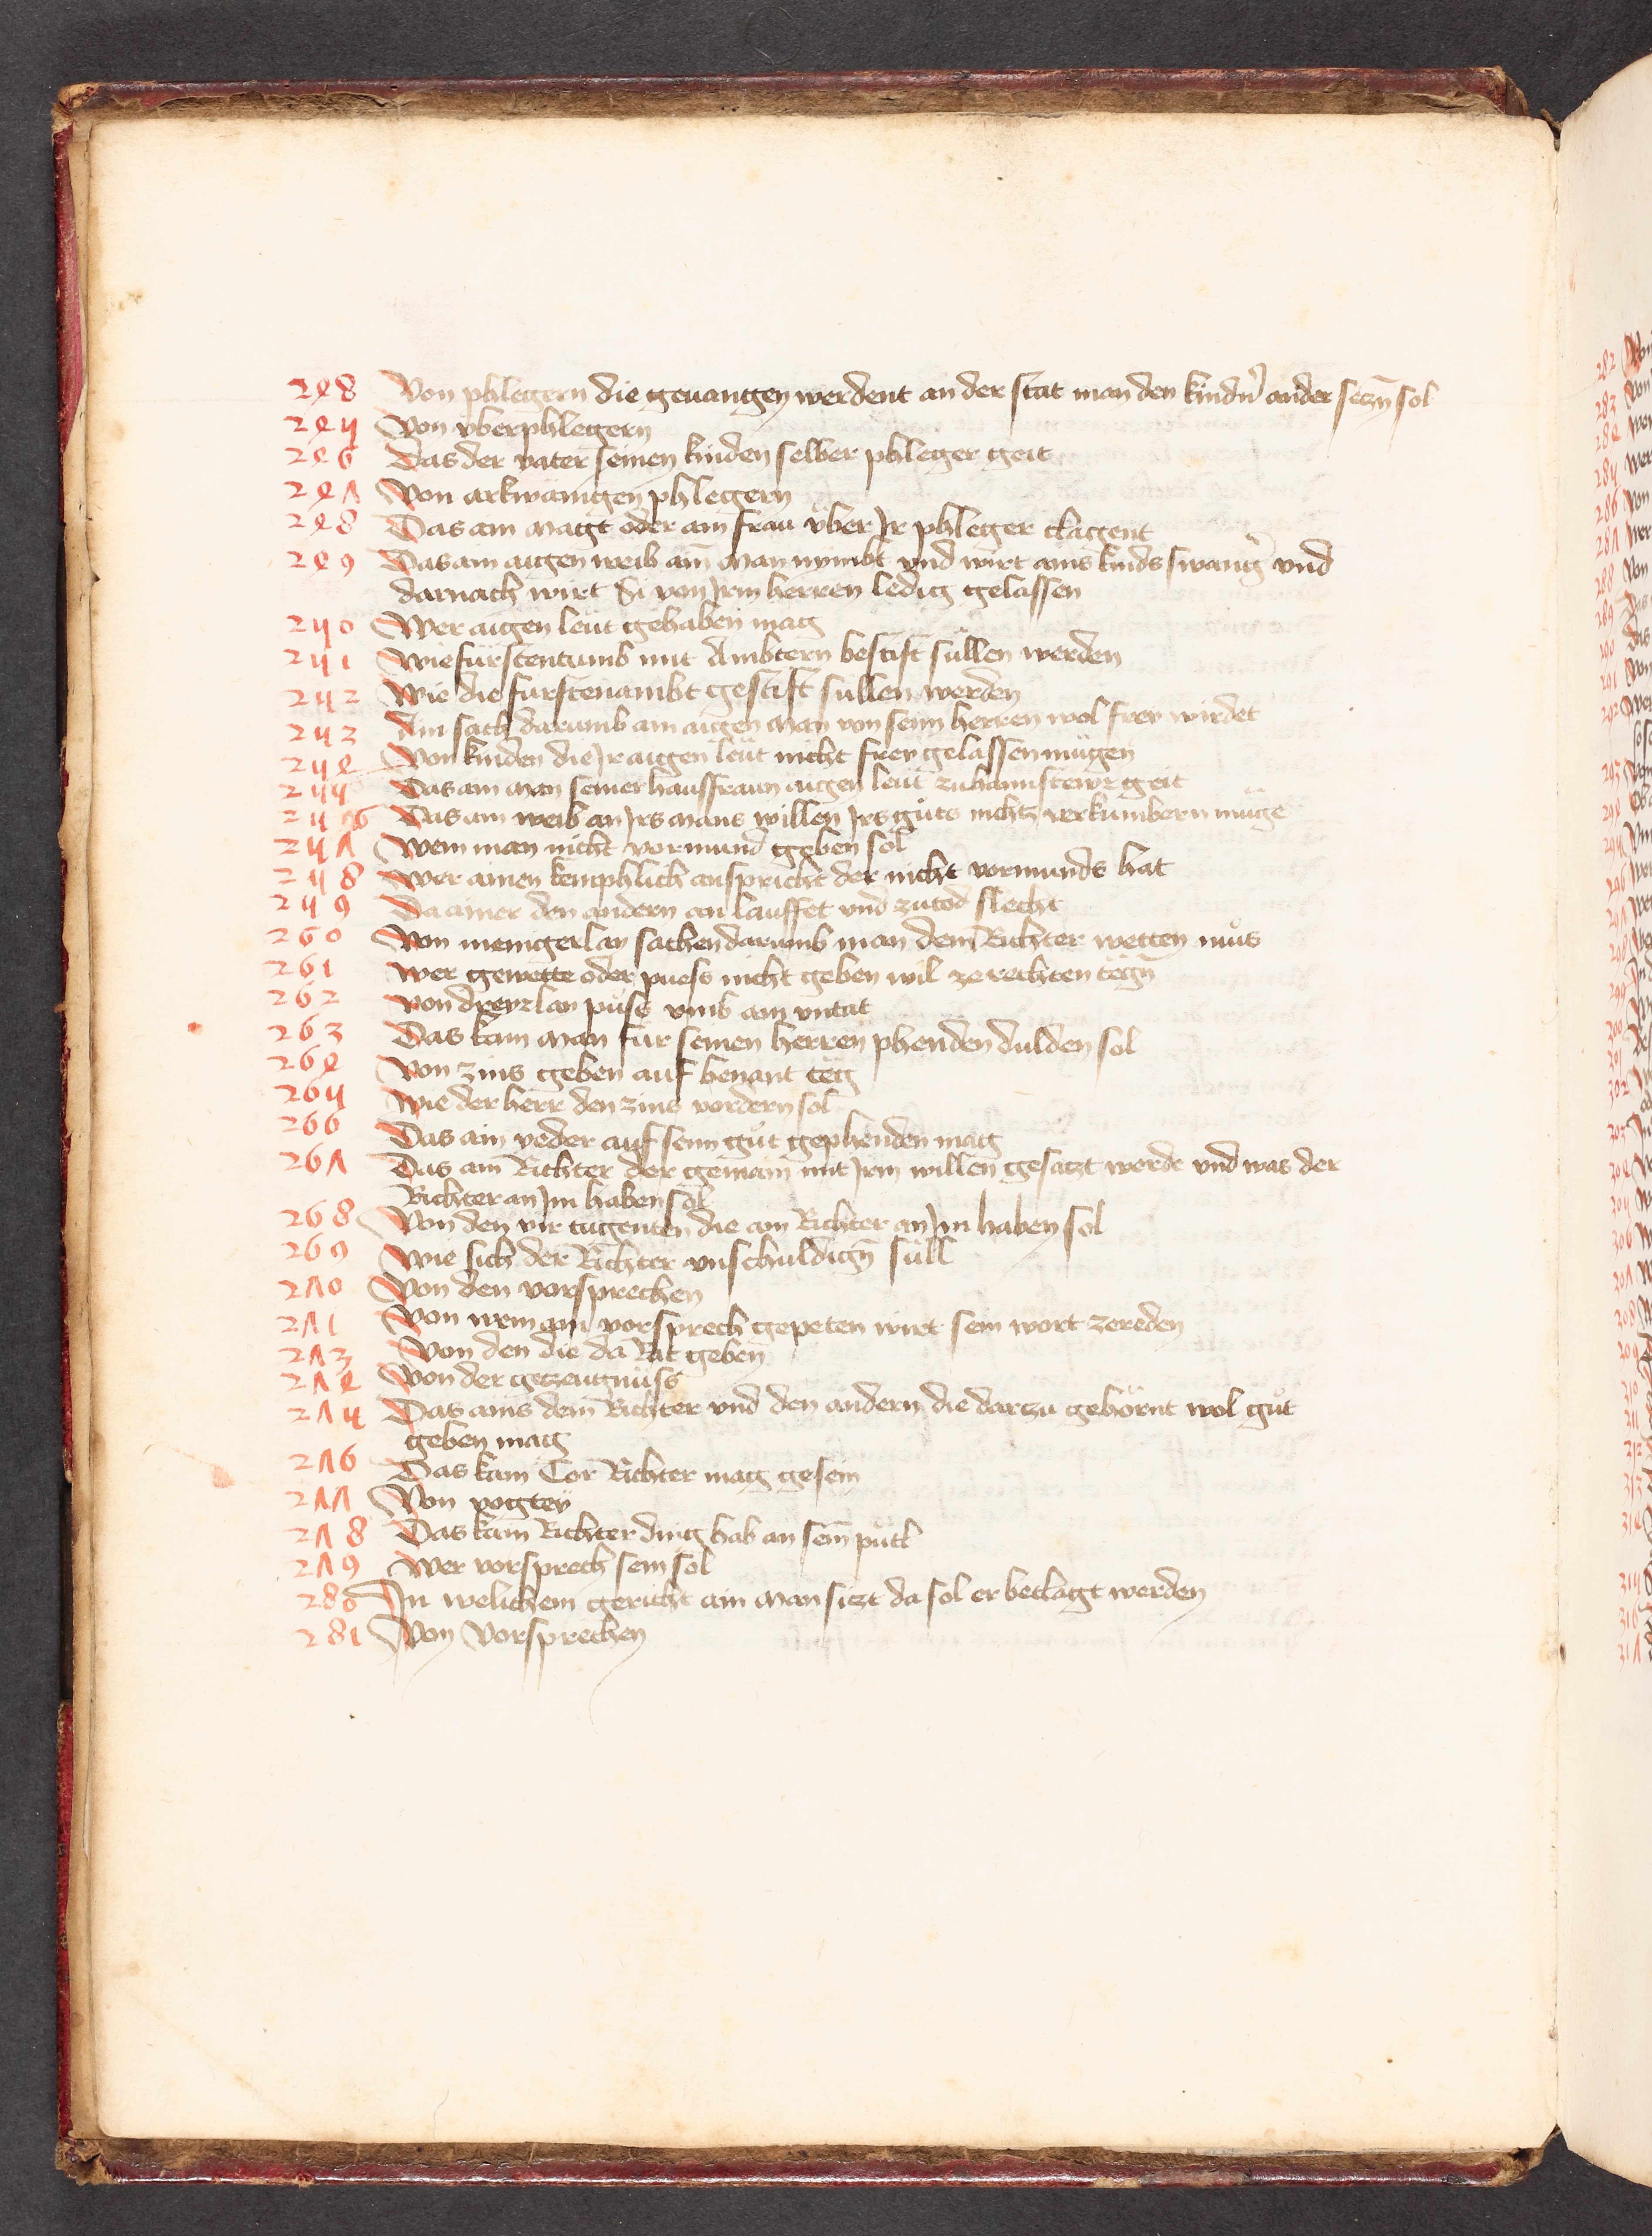 248 Von phlegern die geuangen werdent an der stat man den kindn̄ ander seczn̄ sol
245 Von vberphlegern
246 Das der vater seinen kinden selber phleger geit
247 Von arkwänigen phlegern
248 Das ain magt oder ain frau v̈ber Jr phleger clagent
249 Das ain aigen weib ain̄ man nymbt vnd wirt ains kinds swang̃ vnd
darnach wirt si von Jrm herren ledig gelassen
250 Wer aigen leüt gehaben mag
251 Wie fürstentumb mit Ambtern bestift süllen werden
252 Wie die fürstenambt gestift süllen werden
253 Ain sach darumb ain aigen man von seim herren wol frey wirdet
254 Von kinden die Jr aigen leüt nicht frey gelassen mügen
255 Das ain man seiner hausfraun aigen leüt zuhaimstewr geit
256 Das ain weib an Jrs mans willen Jrs gůts nichtz verkumbern müge
257 Wem man nicht vormund geben sol
258 Wer ainen kemphlich anspricht der nicht vormunds hat
259 Da ainer den andern an lauffet vnd zutod slecht
260 Von menigerlay sachen darumb man dem Richter wetten můs
261 Wer gewette oder puess nicht geben wil ze rechten tëgn̄
262 Von dreyrlay půss vmb ain vntat
263 Das kain man für seinen herren phenden dulden sol
264 Von zins geben auf benant tëg
265 Wie der herr den zins vordern sol
266 Das ain yeder auf seim gůt gephenden mag
267 Das ain Richter der gemain mit Jrm willen gesaczt werde vnd was der
Richter an Jm haben sol
268 Von den vir tugenten die ain Richter an Jm haben sol
269 Wie sich der Richter vnschuldign̄ süll
270 Von den vorsprechen
271 Von wem ain vorsprech gepeten wirt sein wort zereden
273 Von den die da Rat geben
274 Von der geczeugnüss
275 Das ains dem Richter vnd den andern die darzu gehörnt wol gůt
geben mag
276 Das kain Tor Richter mag gesein
277 Von vogtey
278 Das kain Richter ding hab an sein̄ pütl
279 Wer vorsprech sein sol
280 In welichem gericht ain man siczt da sol er beclagt werden
281 Von Vorsprechen